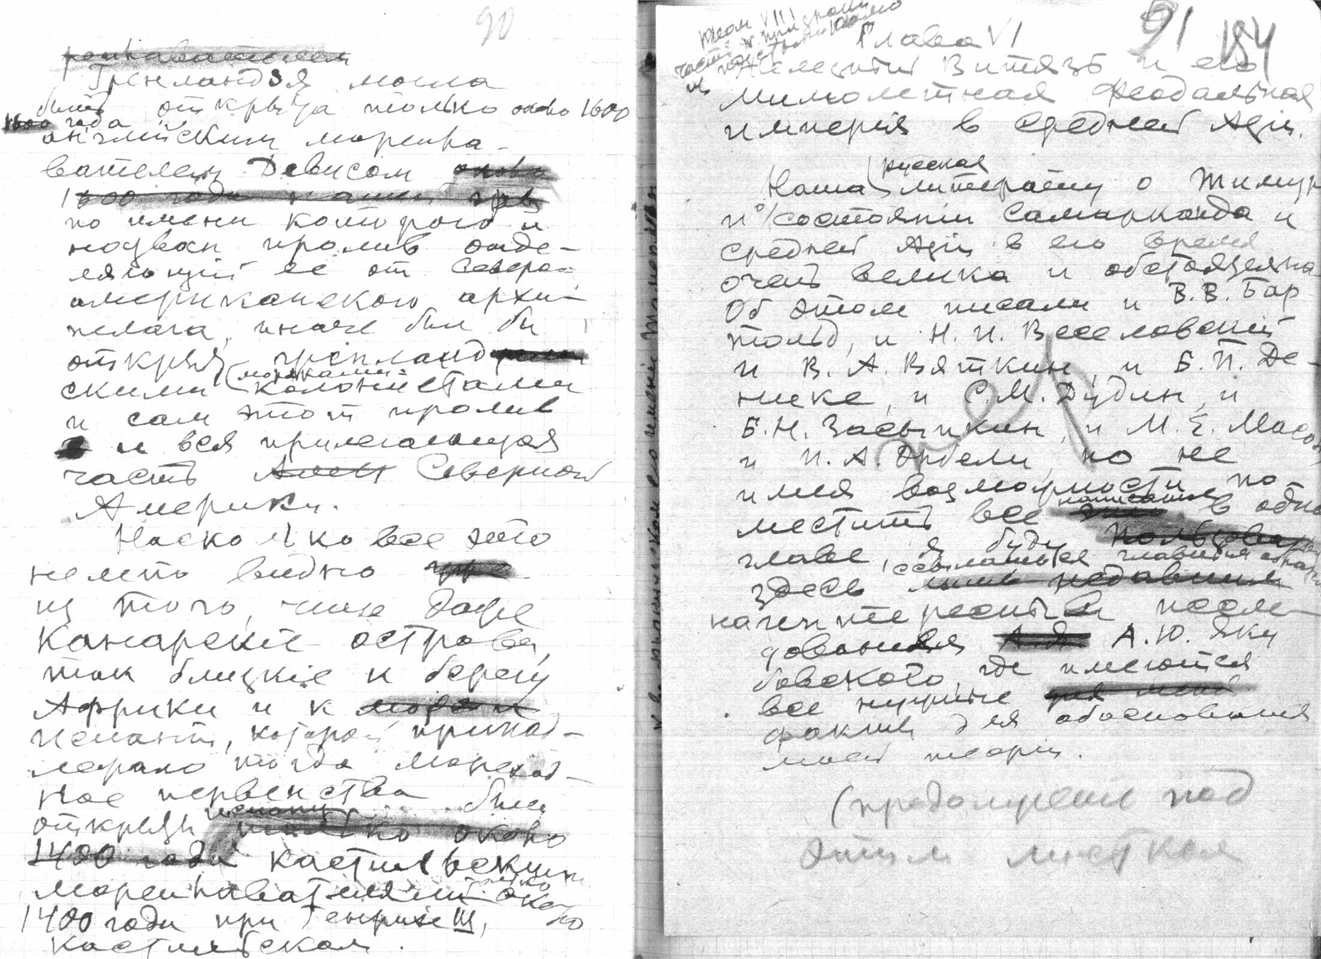 90
Гренландія могла
быть открыта только около 1600
года
англійским морепла-
вателем Девисом
1600 года нашей эры
по имени котораго и
назван пролив отде-
ляющій ее от Северо-
американскаго архи-
пелага, иначе был бы
открыт гренланд
скими (моряками-
колонистами
и сам этот пролив
и вся прилегающая
часть Северной
Америки.
Насколько все это
нелепо видно
из того, что даже
Канарскіе острова,
так близкіе к берегу
Африки и к
Испаніи, которой принад-
лежало тогда мореход-
ное первенство были
открыты
1400 года кастильскими
мореплавателями только около
1400 года при Генрихе III,
Кастильском.
91 184
Том VIII
Глава VI
Немецкий Витязь и его
мимолетная феодальная
имперія в средней Азіи.
Наша русская литература о Тимуре
и о состояніи Самарканда и
средней Азіи в его время
очень велика и обстоятельна
Об этом писали и В.В. Бар
тольд, и Н. И. Веселовскій
и В. А. Вяткин, и Б. П. Де-
нике, и С.М. Дудин, и
Б.Н. Засыпкин, и М. Е. Массон
и И. А. Орбели, но не
имея возможности по
местить все написанное в одной
главе, я буду
здесь ссылаться главным образом
на интересныя изсле-
дования А.Ю. Яку
бовского, где имеются
все нужные
факты для обоснования
моей теории.
(продолжение под
этим листком